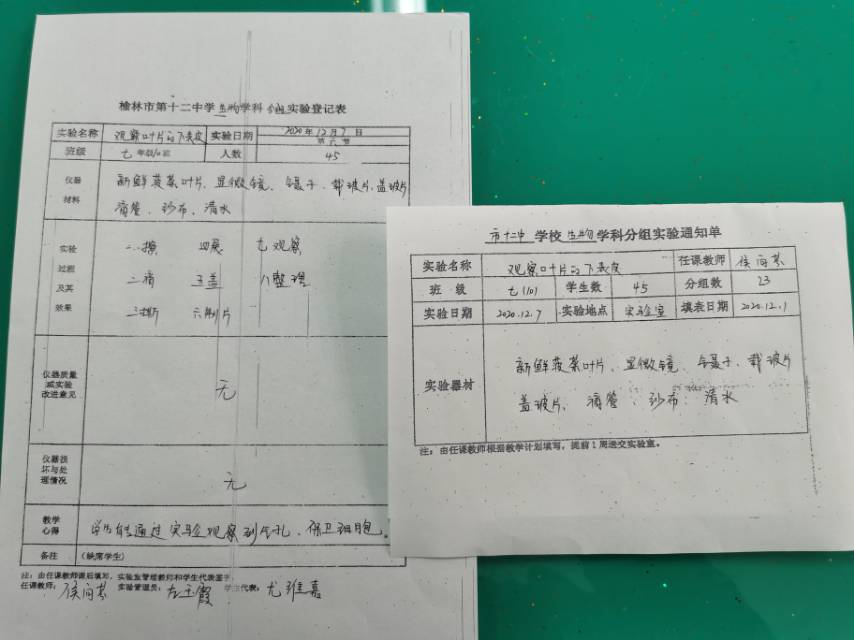 榆林市第十二中学生物学科分组实验登记表
实验名称 观察叶片的下表皮 实验日期 2020年12月7日
第六节
班级 七年级10班 人数 45
仪器材料 新鲜菠菜叶片、显微镜、镊子、载玻片、盖玻片
滴管、纱布、清水
实验过程及其效果
一擦 四展 七观察
二滴 五盖 八整理
三撕 六制片
仪器质量或实验改进意见 无
仪器损坏与处理情况 无
教学心得 学生能通过实验观察到气孔、保卫细胞。
备注 (缺席学生)
注:由任课教师课后填写,实验室管理教师和学生代表签字
任课教师: 实验管理员:左玉霞 学生代表:尤雅嘉
市十二中学校生物学科分组实验通知单
实验名称 观察叶片的下表皮 任课教师
班级 七(10) 学生数 45 分组数 23
实验日期 2020.12.7 实验地点 实验室 填表日期 2020.12.1
实验器材 新鲜菠菜叶片、显微镜、镊子、载玻片
盖玻片、滴管、纱布、清水
注:由任课教师根据教学计划填写,提前1周送交实验室。